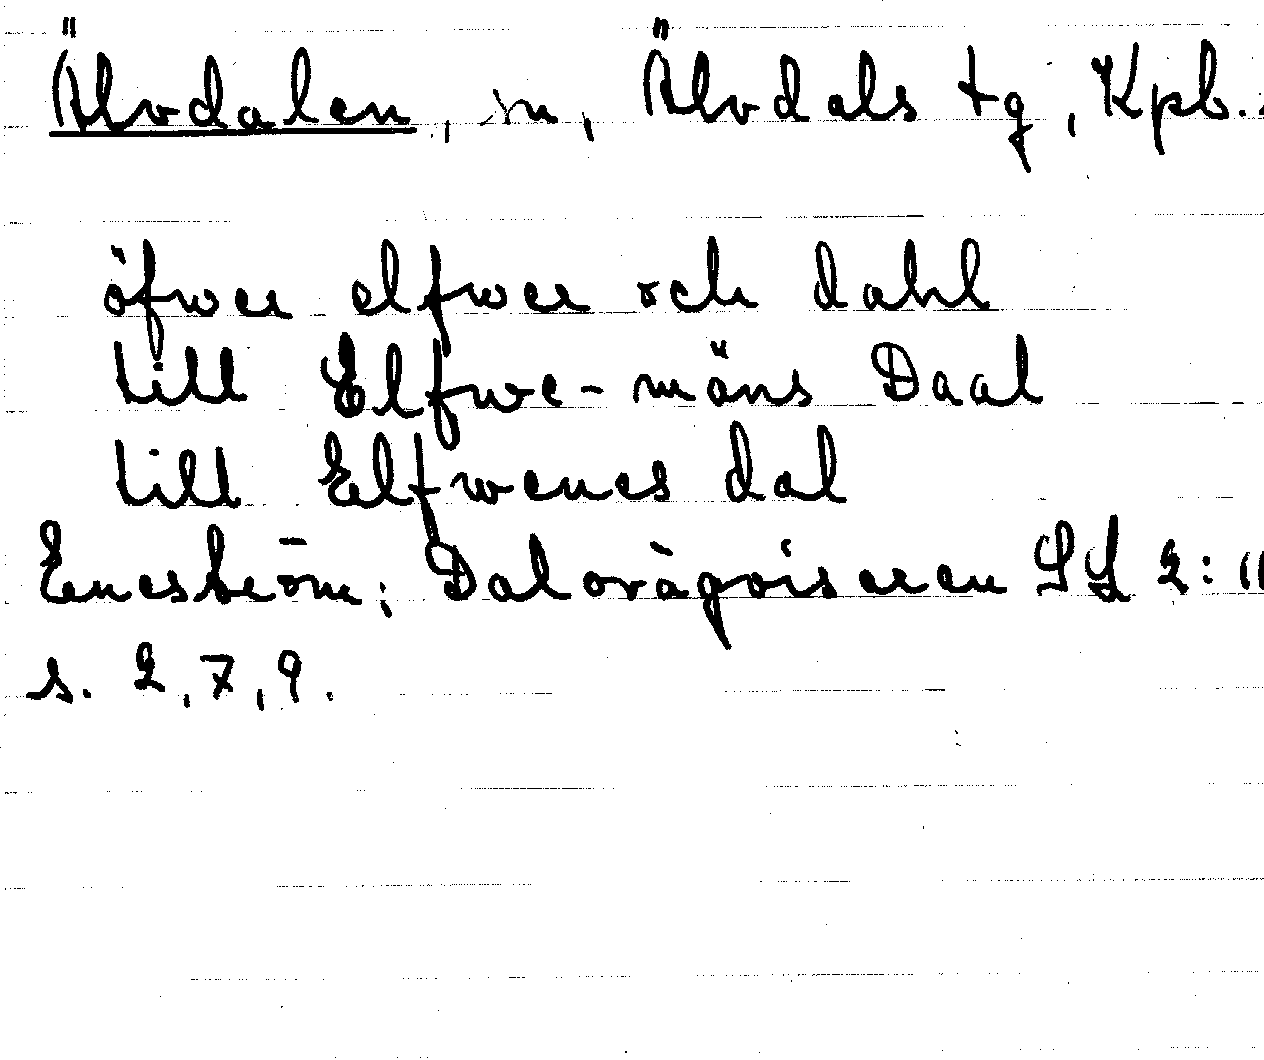 Älvdalen, sn, Älvdals tg, Kpb.
öfwer elfwer och dahl
till Elfwe-mäns Daal
till Elfwenes dal
Eneström: Dalvägviseren SL 2:11
s. 2,7,9.